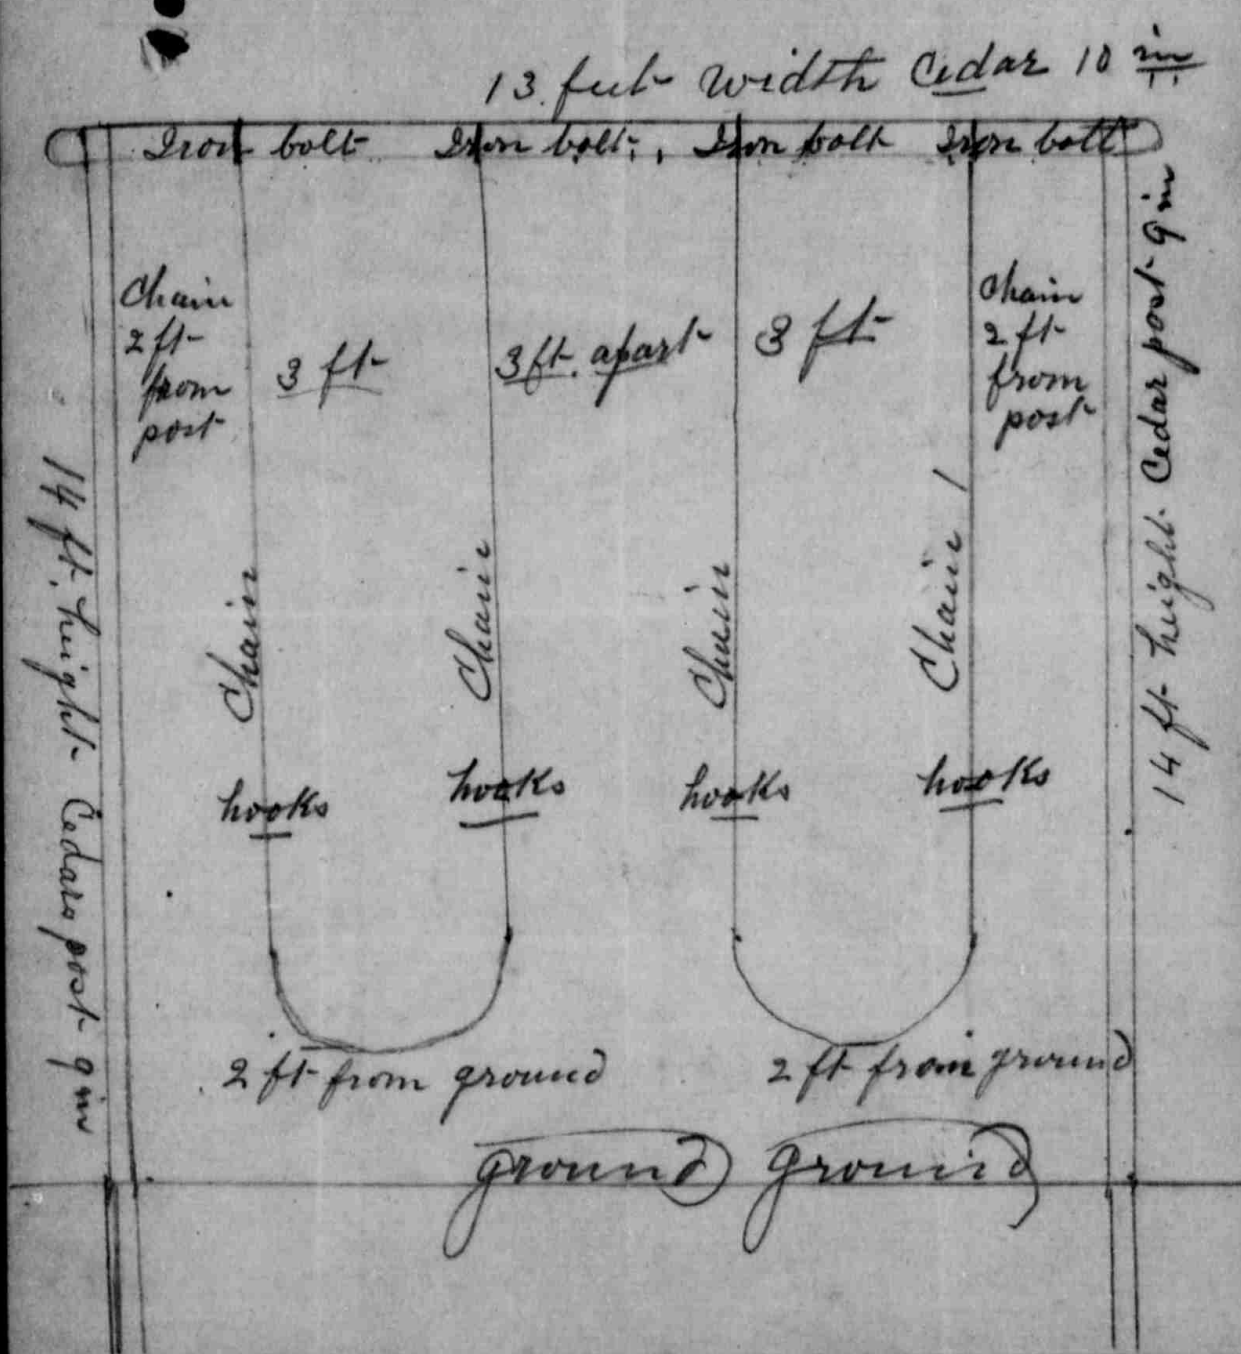 13 feet width Cedar 10 in
Iron bolt Iron bolt Iron bolt Iron bolt
Chain
2 ft
from
post
3 ft
3 ft. apart
3 ft
Chain
2 ft
from
post
14 ft. height Cedar post 9 in
14 ft height Cedar post 9 in
Chain
Chain
Chain
Chain
hooks
hooks
hooks
hooks
2 ft from ground
2 ft from ground
ground ground